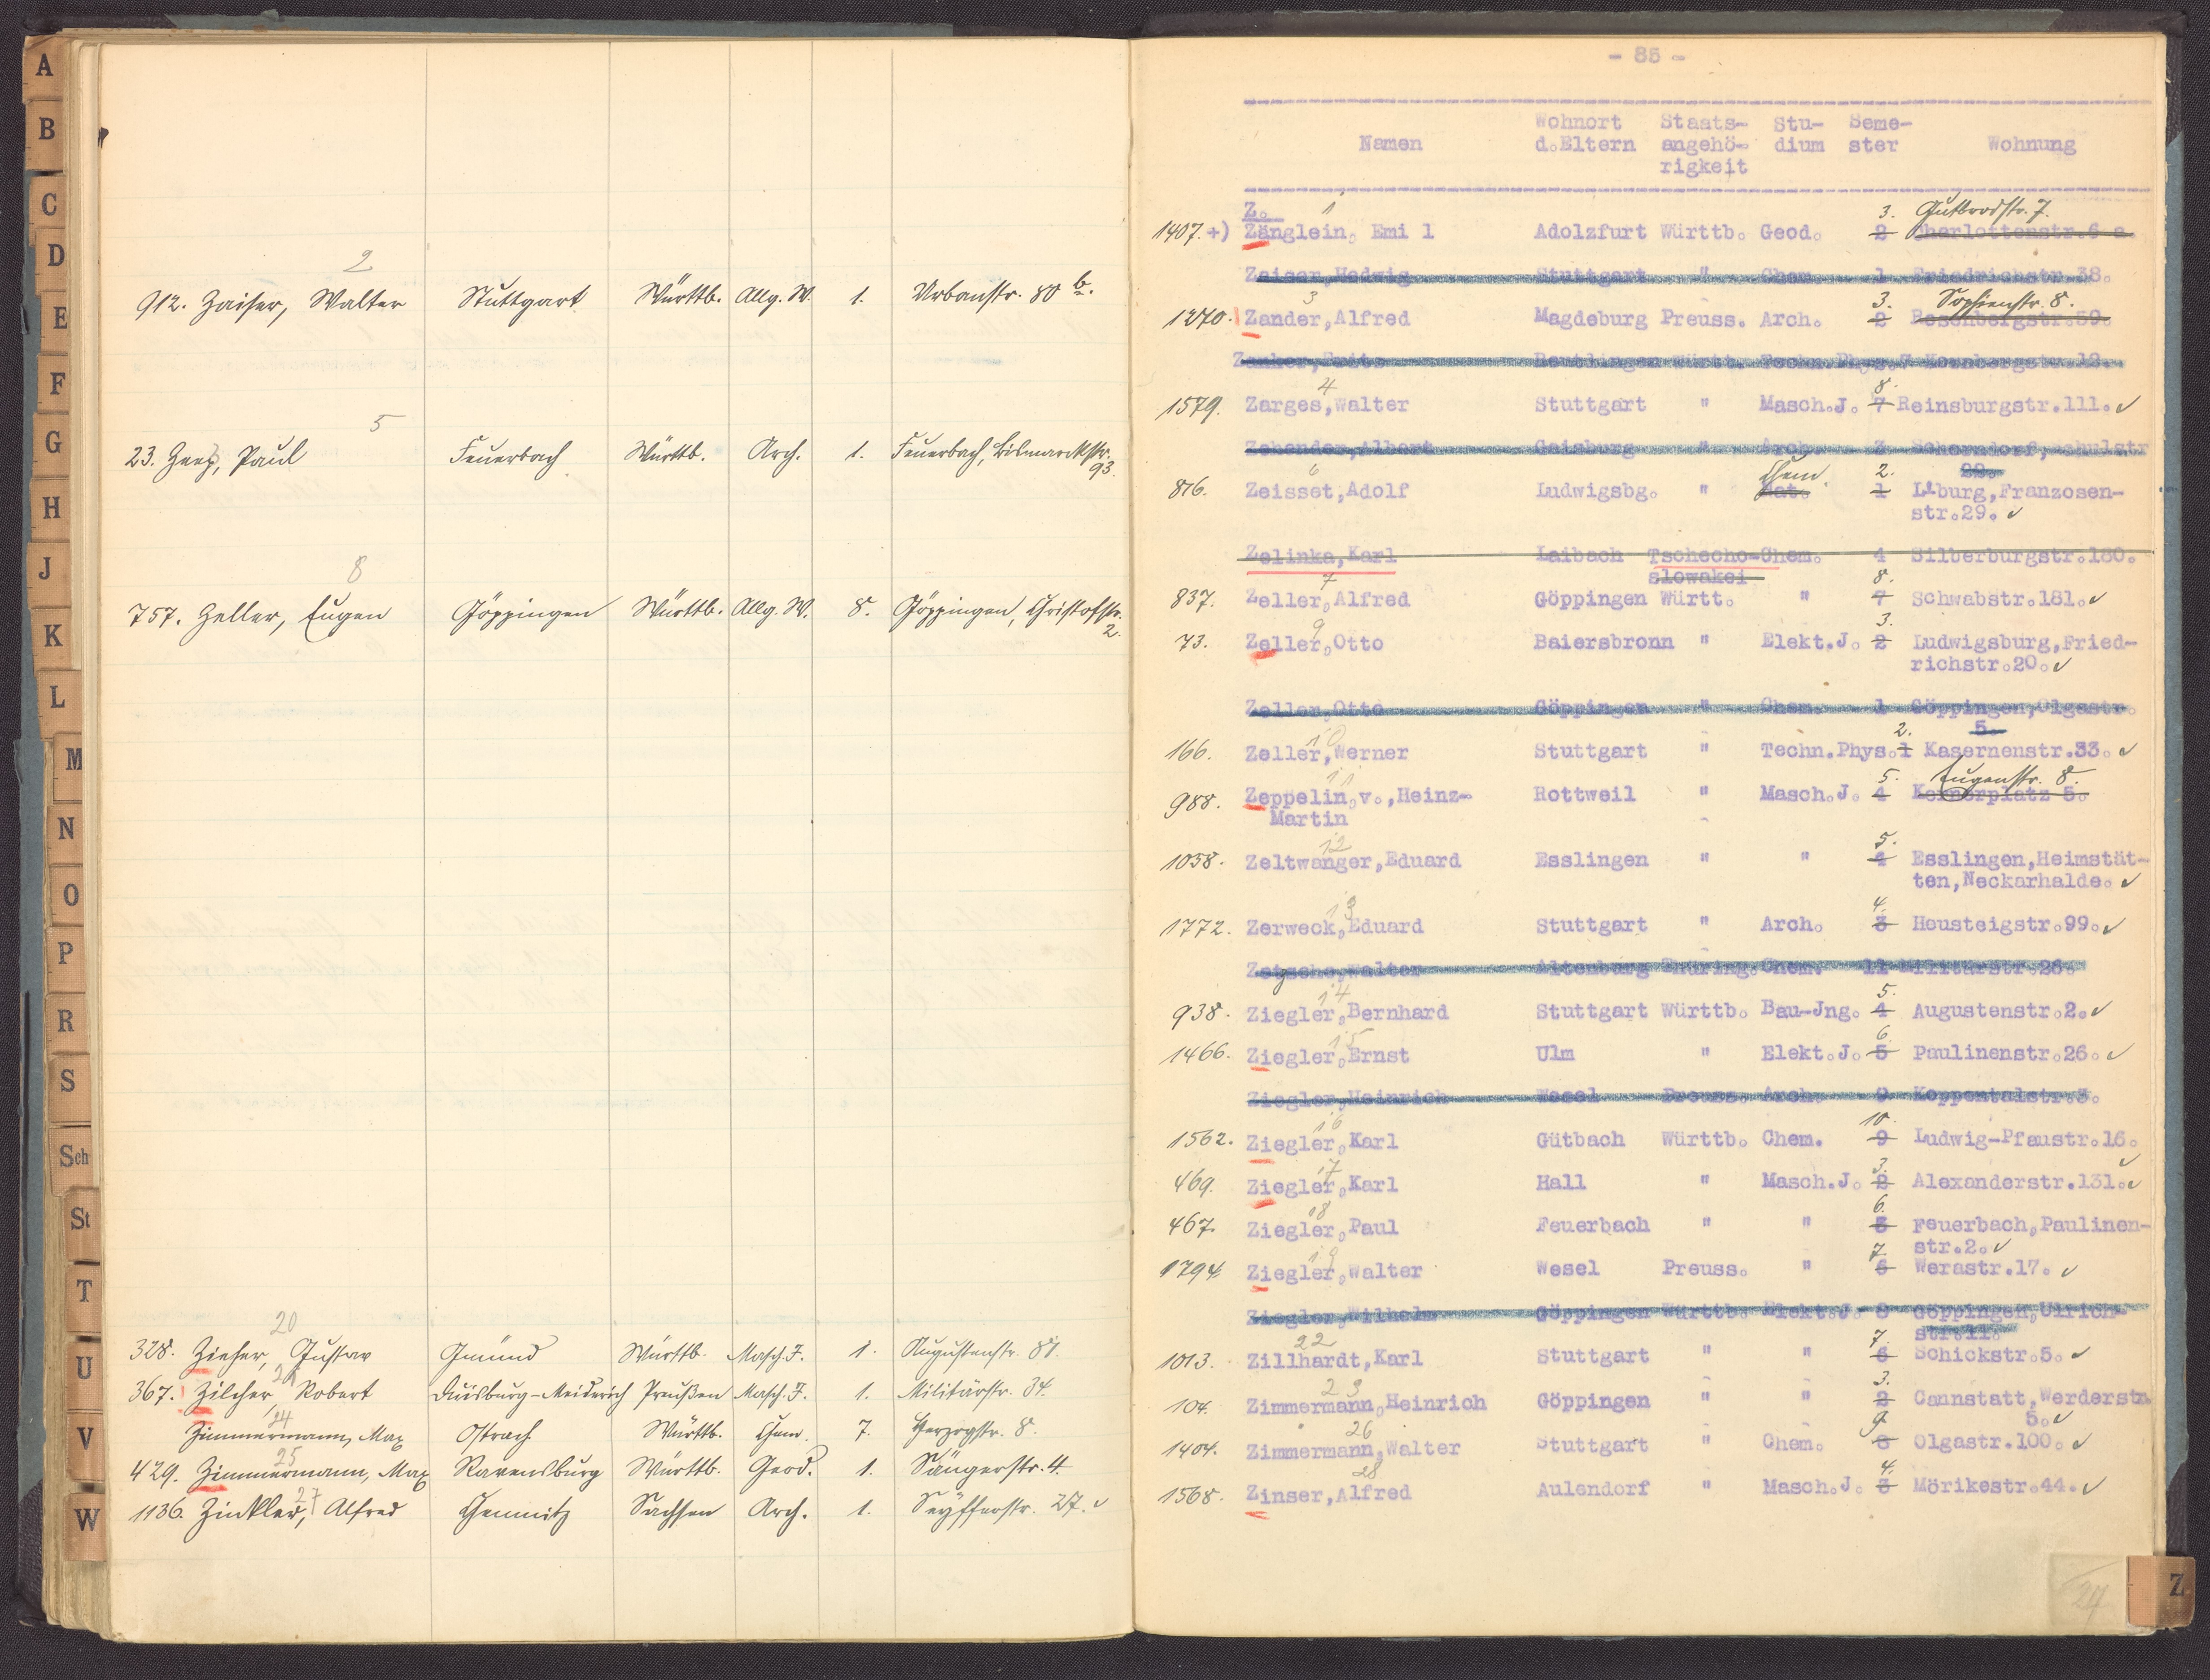 A
B
C
D
E
F
G
H
J
K
L
M
N
O
P
R
S
Sch
St
T
U
V
W
2
912. Zaiser, Walter Stuttgart Württb. Allg. W. 1. Urbanstr. 80 b.
5
23. Paul Feuerbach Württb. Arch. 1. Feuerbach, Bismarckstr.
93.
8
757. Zeller, Eugen Göppingen Württb. Allg. W. 8. Göppingen, Christofstr.
2.
20
328. Zieher, Gustav Gmünd Württb. Masch. J. 1. Augustenstr. 81.
21
367. Zilcher, Robert Duisburg-Meiderich Preußen Masch. J. 1. Militärstr. 34.
24
Zimmermann, Max Ostrach Württb. Chem. 7. Herzogstr. 8.
25
429. Zimmermann, Max Ravensburg Württb. Geod. 1. Sängerstr. 4.
27
1136. Zinkler, Alfred Chemnitz Sachsen Arch. 1. Seyfferstr. 27. ✓
- 85 -
Wohnort Staats- Stu- Seme-
Namen d.Eltern angehö- dium ster Wohnung
rigkeit
Z. 1 3. Gutbrodstr. 7.
1407. +) Zänglein, Emi l Adolzfurt Württb. Geod. 2 Charlottenstr.6 a
Zaiser,Hedwig Stuttgart " Chem. 1 Friedrichstr.38.
3 3. Sophienstr. 8.
1270. Zander,Alfred Magdeburg Preuss. Arch. 2 Rosenbergstr.59.
Reutlingen Württ. Techn.Phys.7 Kornbergstr.12.
4 8.
1579. Zarges,Walter Stuttgart " Masch.J. 7 Reinsburgstr.111. ✓
Zehender,Albert Gaisburg " Arch. 3 Schorndorf, Schulstr
22.
6 Chem. 2.
876. Zeisset,Adolf Ludwigsbg. " Mat. 1 L'burg,Franzosen-
str.29. ✓
Zelinka,Karl Laibach Tschecho-Chem. 4 Silberburgstr.180.
slowakei
7 8.
837. Zeller,Alfred Göppingen Württ. " 7 Schwabstr.181. ✓
9 3.
73. Zeller,Otto Baiersbronn " Elekt.J. 2 Ludwigsburg,Fried-
richstr.20. ✓
Zeller,Otto Göppingen " Chem. 1 Göppingen,Olgastr.
5.
10 2.
166. Zeller,Werner Stuttgart " Techn.Phys.1 Kasernenstr.33. ✓
11 5. Eugenstr. 8.
988. Zeppelin,v.,Heinz- Rottweil " Masch.J. 4 Kernerplatz 5.
Martin
12 5.
1058. Zeltwanger,Eduard Esslingen " " 4 Esslingen,Heimstät-
ten,Neckarhalde. ✓
13 4.
1772. Zerweck,Eduard Stuttgart " Arch. 3 Heusteigstr.99. ✓
Walter Altenburg Thüring.Chem. 11 Militärstr.26.
14 5.
938. Ziegler,Bernhard Stuttgart Württb. Bau-Jng. 4 Augustenstr.2. ✓
15 6
1466. Ziegler,Ernst Ulm " Elekt.J. 5 Paulinenstr.26. ✓
Ziegler,Heinrich Wesel Preuss. Arch. 9 Koppentalstr.3.
16 10.
1562. Ziegler,Karl Gütbach Württb. Chem. 9 Ludwig-Pfaustr.16. ✓
17 3.
469. Ziegler,Karl Hall " Masch.J. 2 Alexanderstr.131. ✓
18 6.
467. Ziegler,Paul Feuerbach " " 5 Feuerbach,Paulinen-
str.2. ✓
19 7.
1794. Ziegler,Walter Wesel Preuss. " 6 Werastr.17. ✓
Ziegler,Wilhelm Göppingen Württb. Elekt.J. 8 Göppingen,Ulrich-
str.11.
22 7.
1013. Zillhardt,Karl Stuttgart " " 6 Schickstr.5. ✓
23 3.
104. Zimmermann,Heinrich Göppingen " " 2 Cannstatt,Werderstr.
5. ✓
26 9
1404. Zimmermann,Walter Stuttgart " Chem. 8 Olgastr.100. ✓
28 4.
1568. Zinser,Alfred Aulendorf " Masch.J. 3 Mörikestr.44. ✓
Z